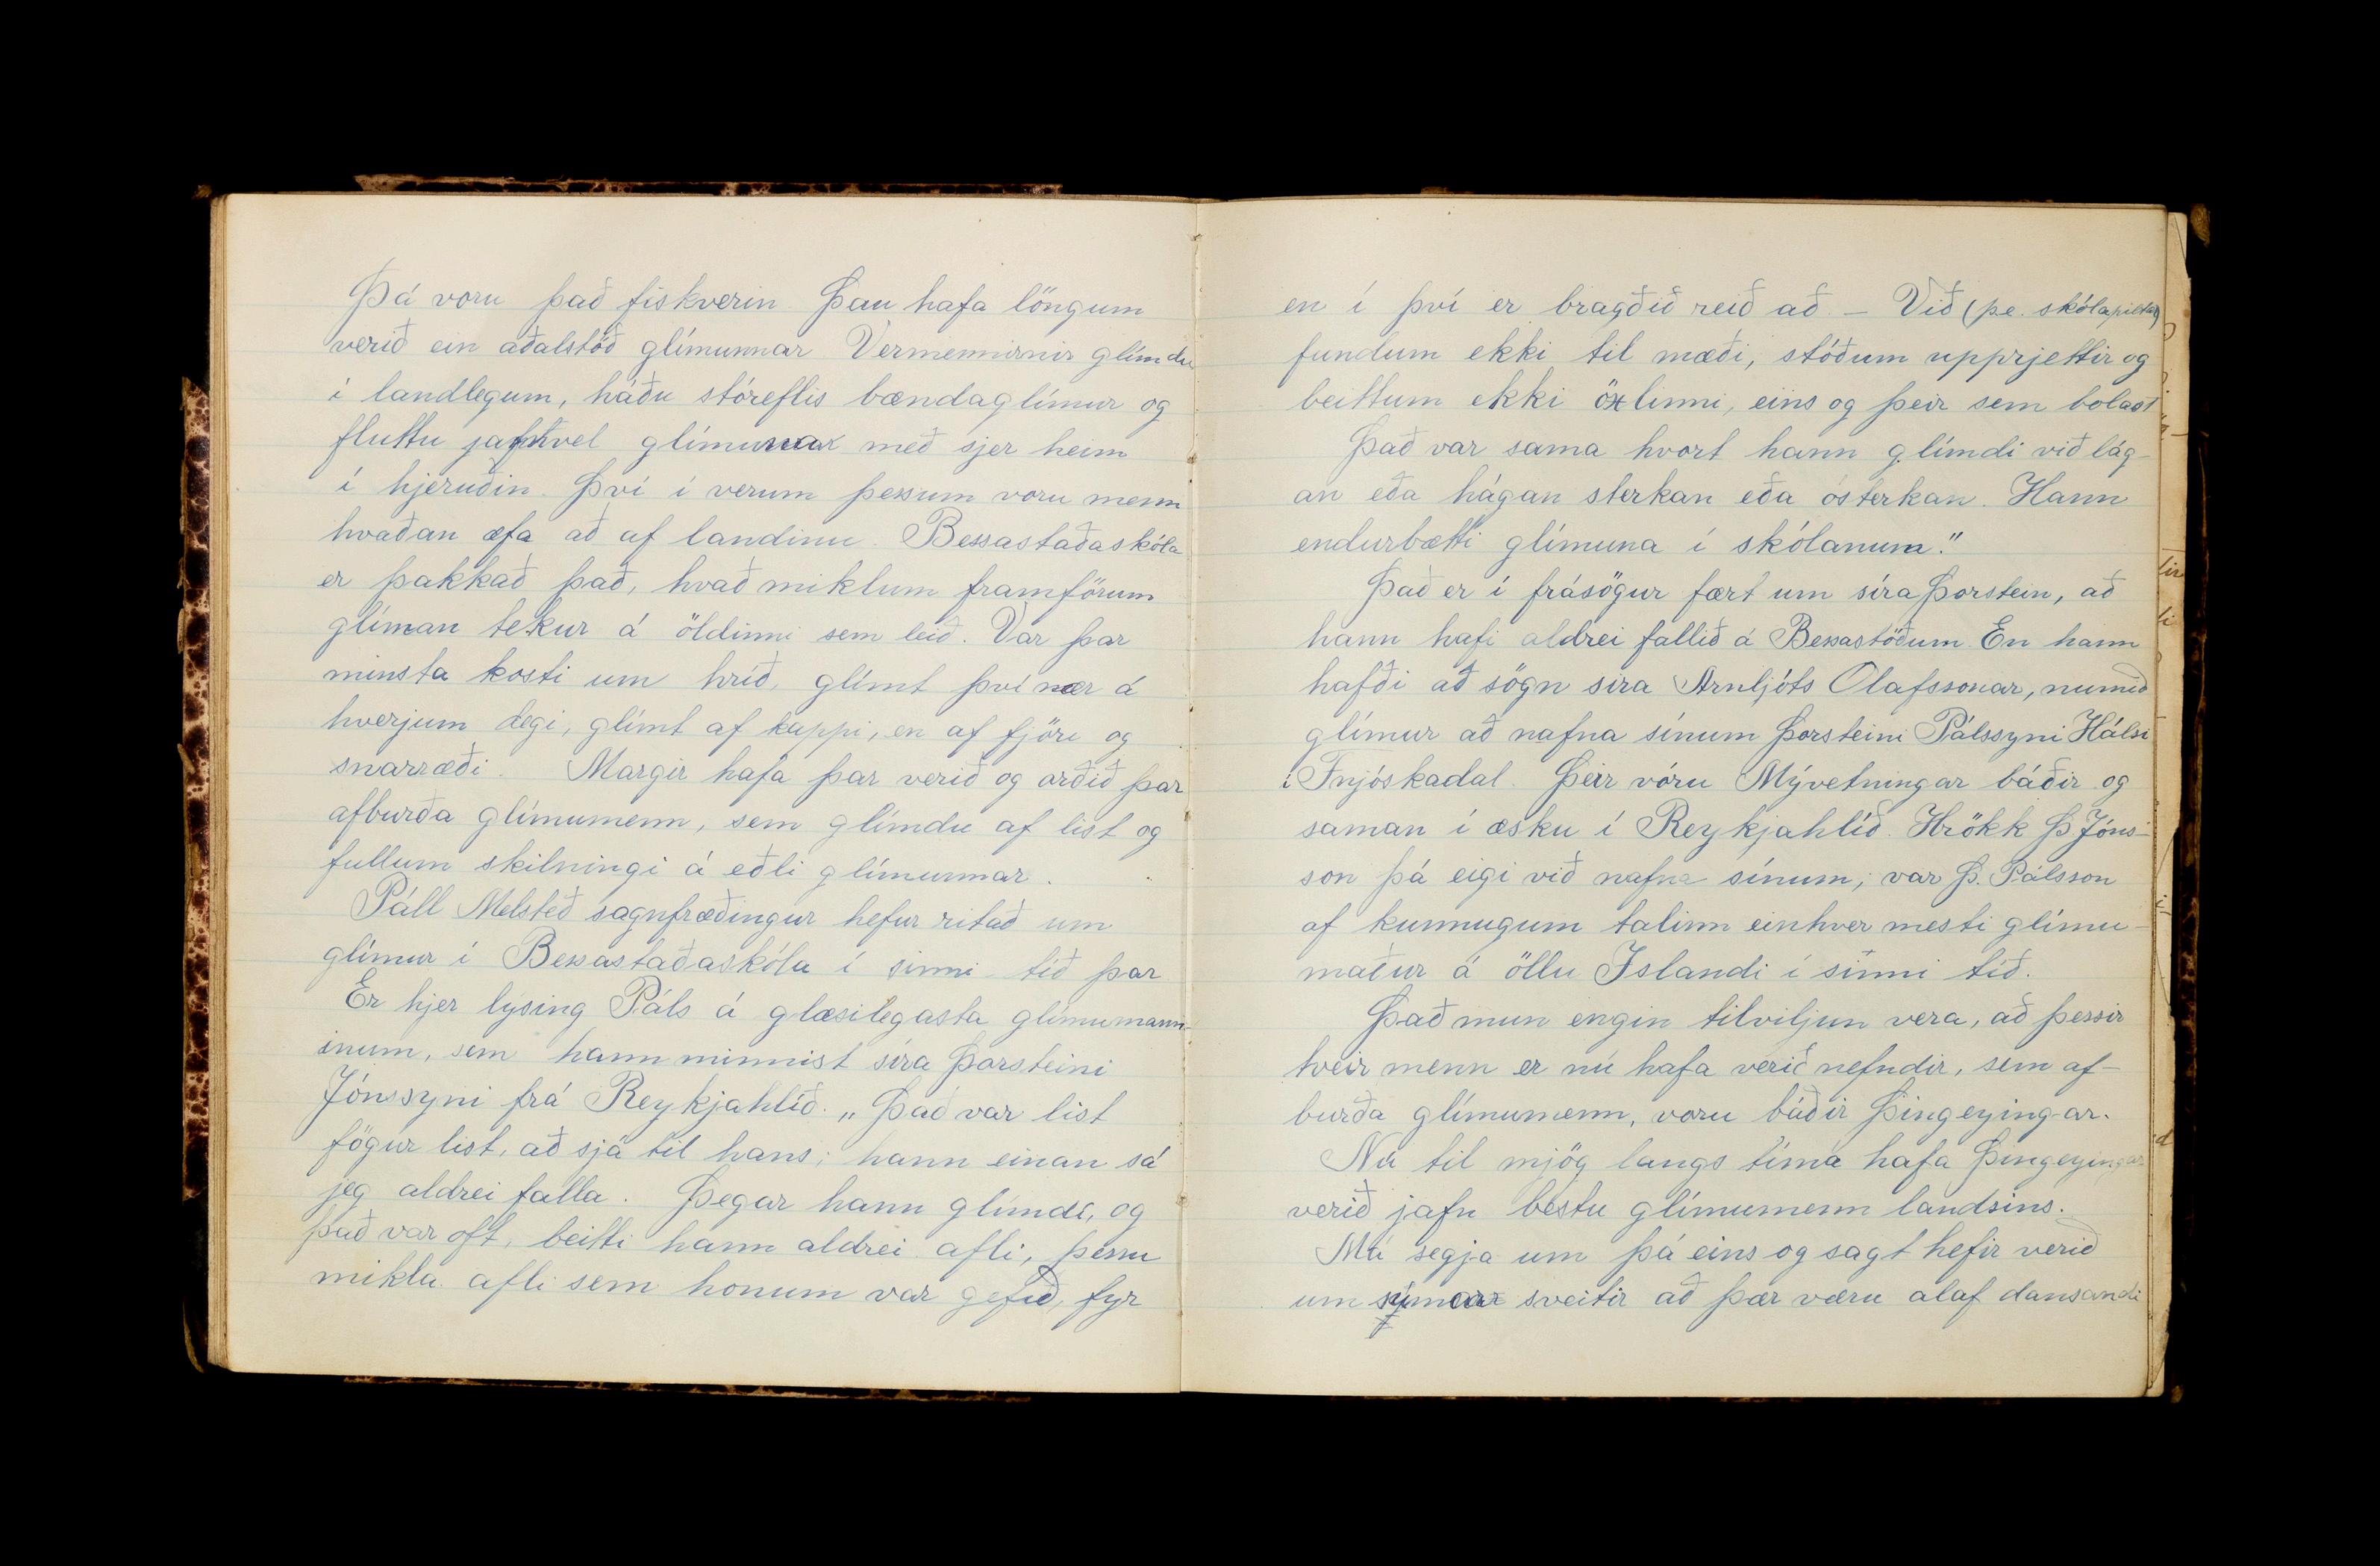 Þá voru það fiskverin Þau hafa löngum
verið ein aðalstöð glímunnar Vermennirnir glímdu
í landlegum, háðu stóreflis bændaglímur og
fluttu jafnvel glímuna með sjer heim
í hjeruðin. Því í verum þessum voru menn
hvaðan æfa að af landinu. Bessastaðaskóla
er þakkað það, hvað miklum framförum
glíman tekur á öldinni sem leið. Var þar
minsta kosti um hríð, glímt því nær á
hverjum degi, glímt af kappi, en af fjöri og
snarræði. Margir hafa þar verið og orðið þar
afburða glímumenn, sem glímdu af list og
fullum skilningi á eðli glímunnar.
Páll Melsteð sagnfræðingur hefur ritað um
glímur í Bessastaðaskóla í sinni tíð þar
Er hjer lýsing Páls á glæsilegasta glímumann-
inum, sem hann minnist síra Þorsteini
Jónssyni frá Reykjahlíð. „Það var list
fögur list, að sjá til hans; hann einan sá
jeg aldrei falla. Þegar hann glímdi, og
það var oft, beitti hann aldrei afli, þessu
mikla afli sem honum var gefið, fyr
en í því er bragðið reið að – Við (þ.e. skólapiltar)
fundum ekki til mæði, stóðum upprjettir og
beittum ekki öxlinni, eins og þeir sem bolast
Það var sama hvort hann glímdi við lág-
an eða hágan sterkan eða ósterkan. Hann
endurbætti glímuna í skólanum."
Það er í frásögur fært um síra Þorstein, að
hann hafi aldrei fallið á Bessastöðum En hann
hafði að sögn síra Arnljóts Olafssonar, numið
glímur að nafna sínum Þorsteini Pálssyni Hálsi
í Fnjóskadal. Þeir vóru Mývetningar báðir og
saman í æsku í Reykjahlíð. Hrökk Þ Jóns-
son þá eigi við nafna sínum; var Þ. Pálsson
af kunnugum talinn einhver mesti glímu-
maður á öllu Islandi í sinni tíð.
Það mun engin tilviljun vera, að þessir
tveir menn er nú hafa verið nefndir, sem af-
burða glímumenn, voru báðir Þingeying-ar.
Nú til mjög langs tíma hafa Þingeyingar
verið jafn bestu glímumenn landsins.
Má segja um þá eins og sagt hefir verið
um sveitir að þær væru alaf dansandi